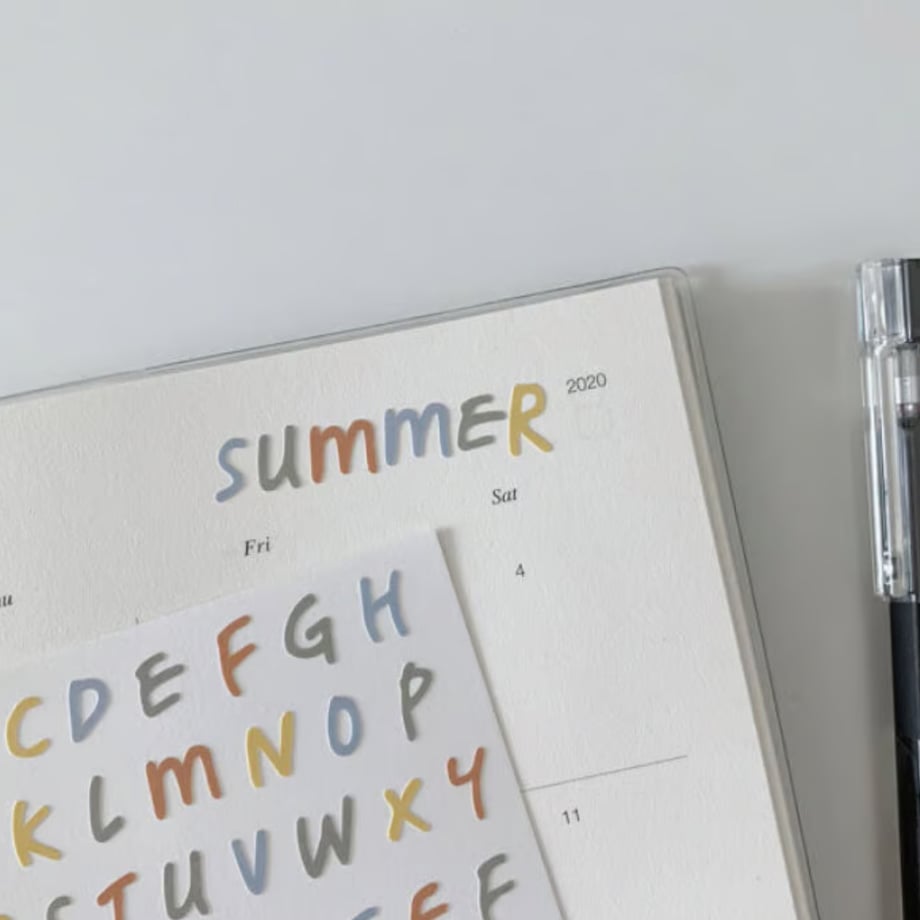 SUMMER 2020
Fri Sat
4
C D E F G H
K L M N O P
T U V W X Y
11